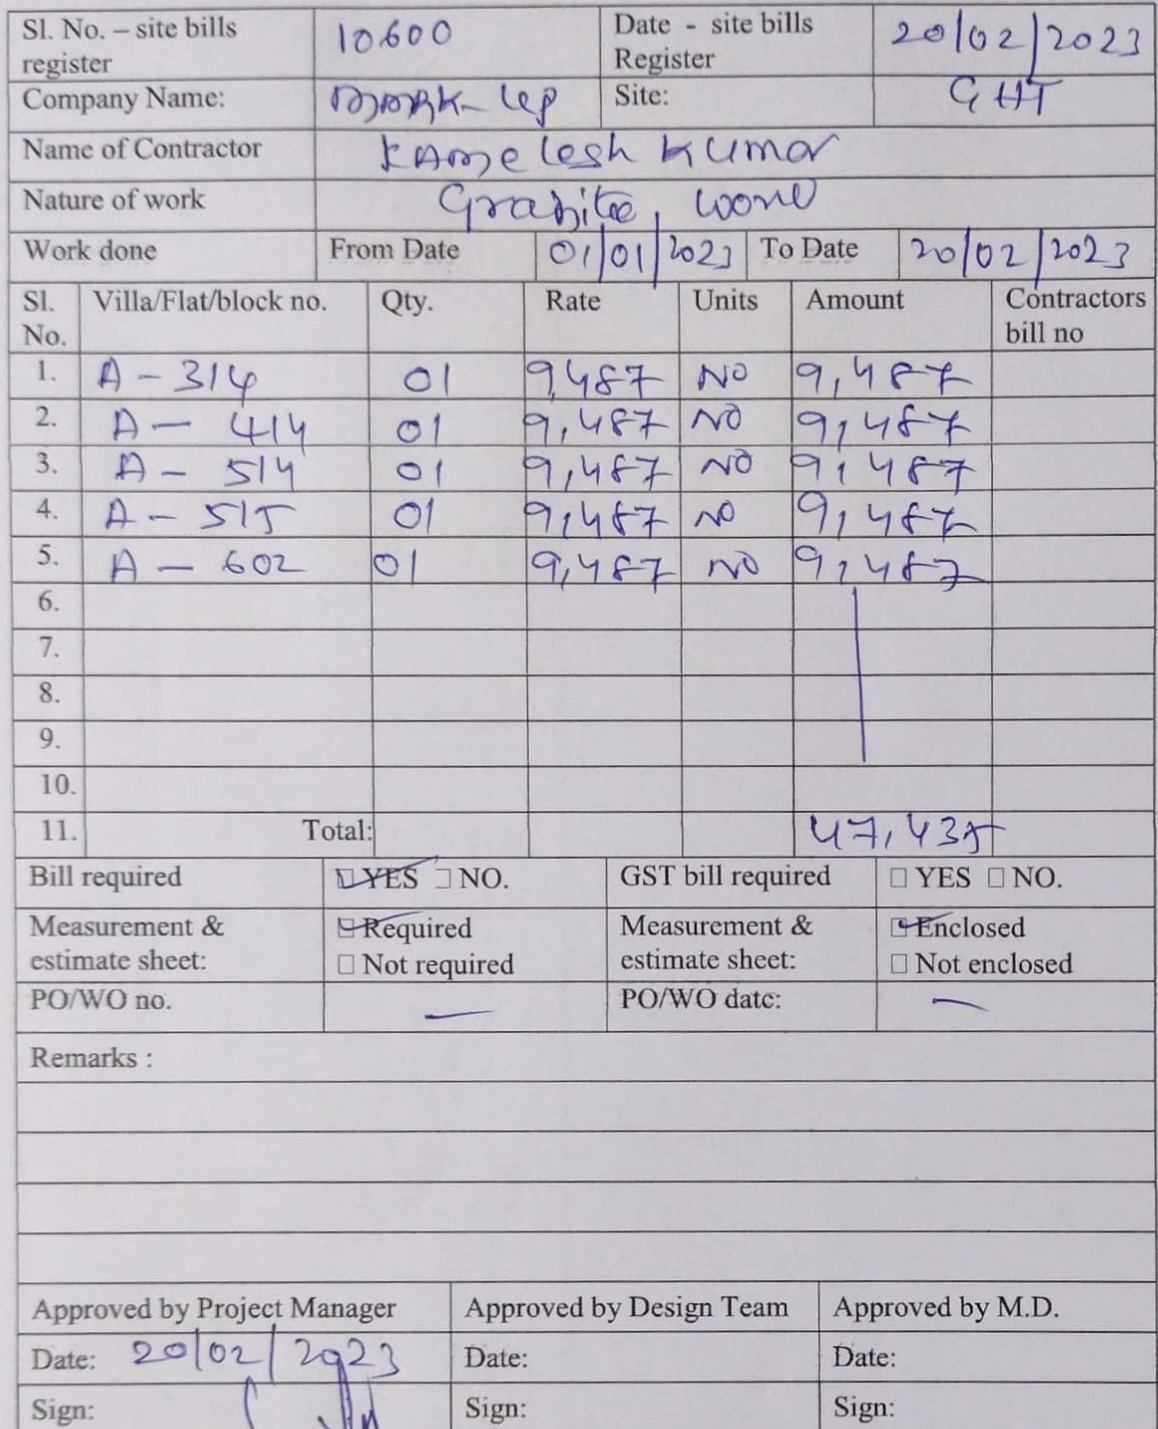 Sl. No. – site bills register 10600 Date - site bills Register 20/02/2023
Company Name: Site: GHT
Name of Contractor KAmelesh Kumar
Nature of work Granite,
Work done From Date 01/01/2023 To Date 20/02/2023
Sl. No. Villa/Flat/block no. Qty. Rate Units Amount Contractors bill no
1. A - 314 01 9,487 NO 9,487
2. A - 414 01 9,487 NO 9,487
3. A - 514 01 9,487 NO 9,487
4. A - 515 01 9,487 NO 9,487
5. A - 602 01 9,487 NO 9,487
6.
7.
8.
9.
10.
11. Total: 47,435
Bill required YES NO. GST bill required YES NO.
Measurement & estimate sheet: Required Measurement & estimate sheet: Enclosed
Not required Not enclosed
PO/WO no. — PO/WO date: —
Remarks :
Approved by Project Manager Approved by Design Team Approved by M.D.
Date: 20/02/2023 Date: Date:
Sign: Sign: Sign: